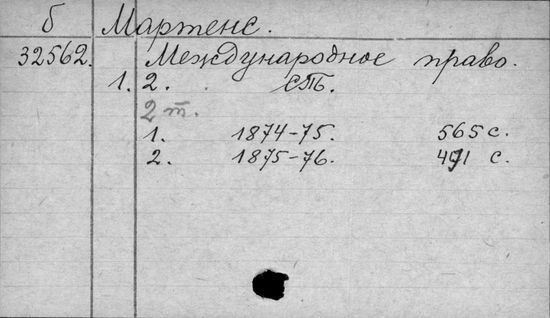 б Мартенс.
32562. Международное право.
1. 2. СПб.
2 т.
1. 1874-75. 565 с.
2. 1875-76. 491 с.